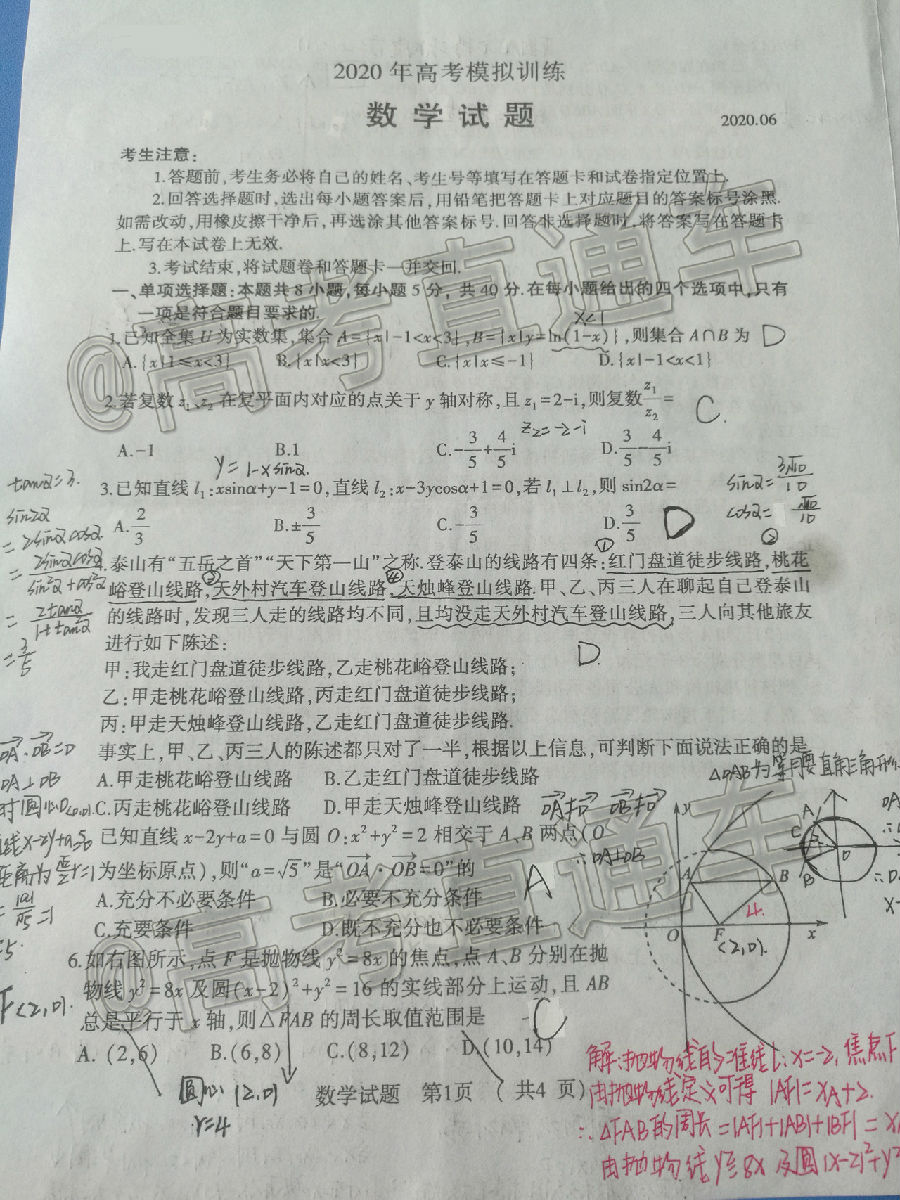 2020年高考模拟训练
数学试题
2020.06
考生注意:
1.答题前,考生务必将自己的姓名、考生号等填写在答题卡和试卷指定位置上.
2.回答选择题时,选出每小题答案后,用铅笔把答题卡上对应题目的答案标号涂黑.
如需改动,用橡皮擦干净后,再选涂其他答案标号.回答非选择题时,将答案写在答题卡
上.写在本试卷上无效.
3.考试结束,将试题卷和答题卡一并交回.
一、单项选择题:本题共8小题,每小题5分,共40分.在每小题给出的四个选项中,只有
一项是符合题目要求的.
x<1
1.已知全集U为实数集,集合A={x|-1<x<3},B={x|y=ln(1-x)},则集合A∩B为 D
A.{x|1≤x<3} B.{x|x<3} C.{x|x≤-1} D.{x|-1<x<1}
2.若复数z₁、z₂在复平面内对应的点关于y轴对称,且z₁=2-i,则复数z₁/z₂= C.
z₂=-2-i
A.-1 B.1 C.-3/5+4/5i D.3/5-4/5i
y=1-xsinα.
tanα=3.
3.已知直线l₁:xsinα+y-1=0,直线l₂:x-3ycosα+1=0,若l₁⊥l₂,则sin2α=
sinα=3√10/10
cosα=√10/10
A.2/3 B.±3/5 C.-3/5 D.3/5 D
sin2α
=2sinαcosα
=2sinαcosα/sin²α+cos²α
=2tanα/1+tan²α
=3/5
① ②
4.泰山有“五岳之首”“天下第一山”之称.登泰山的线路有四条:红门盘道徒步线路,桃花
峪登山线路,③天外村汽车登山线路,④天烛峰登山线路.甲、乙、丙三人在聊起自己登泰山
的线路时,发现三人走的线路均不同,且均没走天外村汽车登山线路,三人向其他旅友
进行如下陈述:
D.
甲:我走红门盘道徒步线路,乙走桃花峪登山线路;
乙:甲走桃花峪登山线路,丙走红门盘道徒步线路;
丙:甲走天烛峰登山线路,乙走红门盘道徒步线路.
事实上,甲、乙、丙三人的陈述都只对了一半,根据以上信息,可判断下面说法正确的是
A.甲走桃花峪登山线路 B.乙走红门盘道徒步线路
C.丙走桃花峪登山线路 D.甲走天烛峰登山线路
OA·OB=0
OA⊥OB
△OAB为等腰直角三角形
5.已知直线x-2y+a=0与圆O:x²+y²=2相交于A、B两点(O
∴OA⊥OB
为坐标原点),则“a=√5”是“OA·OB=0”的
A
A.充分不必要条件 B.必要不充分条件
C.充要条件 D.既不充分也不必要条件
6.如右图所示,点F是抛物线y²=8x的焦点,点A、B分别在抛
物线y²=8x及圆(x-2)²+y²=16的实线部分上运动,且AB
总是平行于x轴,则△FAB的周长取值范围是
C
A.(2,6) B.(6,8) C.(8,12) D.(10,14)
F(2,0).
y
A
B
4.
O
F
x
(2,0).
A
C
B
O
圆心(2,0)
r=4
解:抛物线的准线l:x=-2,焦点F
由抛物线定义可得|AF|=xA+2.
∴△FAB的周长=|AF|+|AB|+|BF|=x
由抛物线y²=8x及圆(x-2)²+y²
数学试题 第1页 (共4页)
@高考直通车
@高考直通车